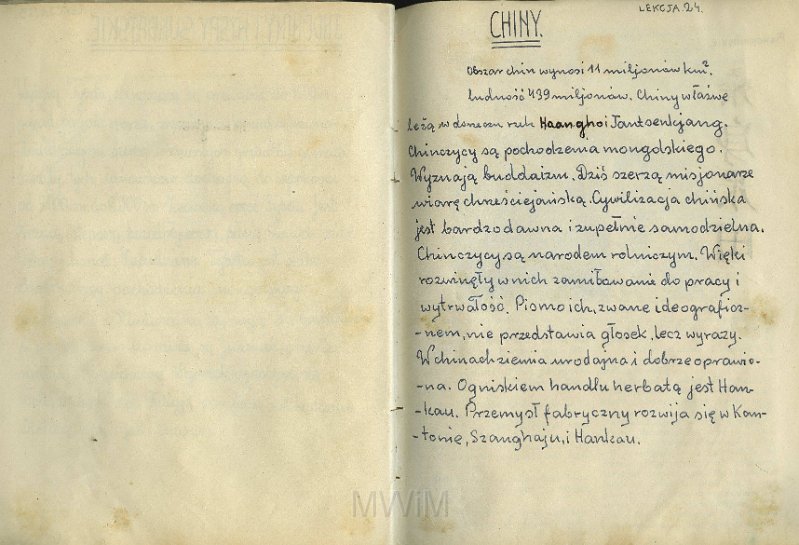 LEKCJA.24.
CHINY.
Obszar chin wynosi 11 miljonów km².
ludność 439 miljonów. Chiny właśwe
leżą w dorzeczu rzek Haangho i Jantsenkjang.
Chinczycy są pochodzenia mongolskiego.
Wyznają buddaizm. Dziś szerzą misjonarze
wiarę chrześciejańską. Cywilizacja chińska
jest bardzo dawna i zupełnie samodzielna.
Chinczycy są narodem rolniczym. Więki
rozwinęły w nich zamiłowanie do pracy i
wytrwałość. Pismo ich, zwane ideograficz-
-nem, nie przedstawia głosek, lecz wyrazy.
W chinach ziemia urodajna i dobrze oprawio-
-na. Ogniskiem handlu herbatą jest Han-
-kau. Przemysł fabryczny rozwija się w Kan-
-tonie, Szanghaju, i Hankau.
MWiM